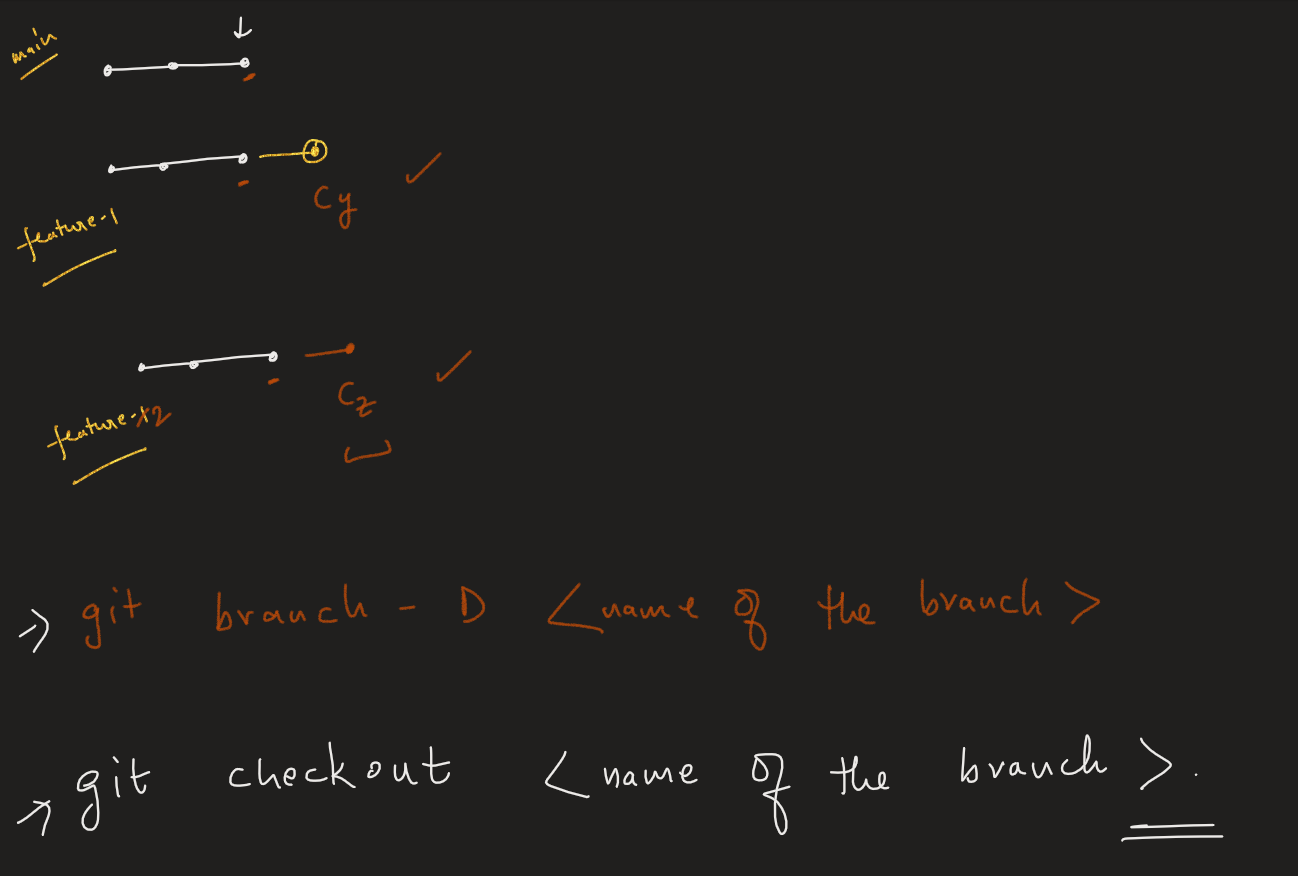 main
Cy
feature-1
Cz
feature-2
→ git branch - D <name of the branch>
→ git checkout <name of the branch>.